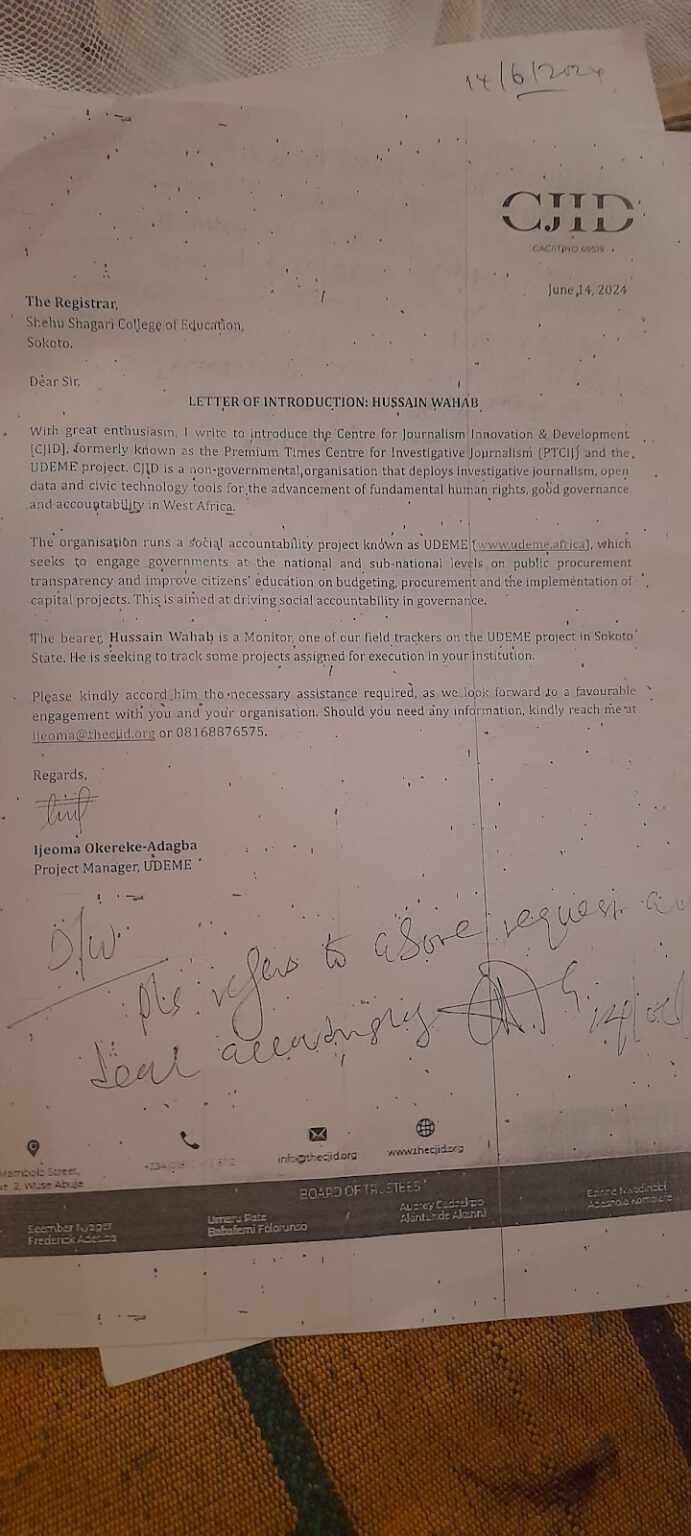 14/6/2024
CJID
CAC/IT/NO 89519
June 14, 2024
The Registrar,
Shehu Shagari College of Education,
Sokoto.
Dear Sir,
LETTER OF INTRODUCTION: HUSSAIN WAHAB
With great enthusiasm, I write to introduce the Centre for Journalism Innovation & Development
[CJID], formerly known as the Premium Times Centre for Investigative Journalism (PTCIJ) and the
UDEME project. CJID is a non-governmental organisation that deploys investigative journalism, open
data and civic technology tools for the advancement of fundamental human rights, good governance
and accountability in West Africa.
The organisation runs a social accountability project known as UDEME (www.udeme.africa), which
seeks to engage governments at the national and sub-national levels on public procurement
transparency and improve citizens' education on budgeting, procurement and the implementation of
capital projects. This is aimed at driving social accountability in governance.
The bearer, Hussain Wahab is a Monitor, one of our field trackers on the UDEME project in Sokoto
State. He is seeking to track some projects assigned for execution in your institution.
Please kindly accord him the necessary assistance required, as we look forward to a favourable
engagement with you and your organisation. Should you need any information, kindly reach me at
ijeoma@thecjid.org or 08168876575.
Regards,
Ijeoma Okereke-Adagba
Project Manager, UDEME
D/W
Pls refers to above request
deal accordingly
info@thecjid.org
www.thecjid.org
Street,
2, Wuse Abuja
BOARD OF TRUSTEES
Umaru Pate
Babafemi Folorunso
Akintunde Akanni
Frederick